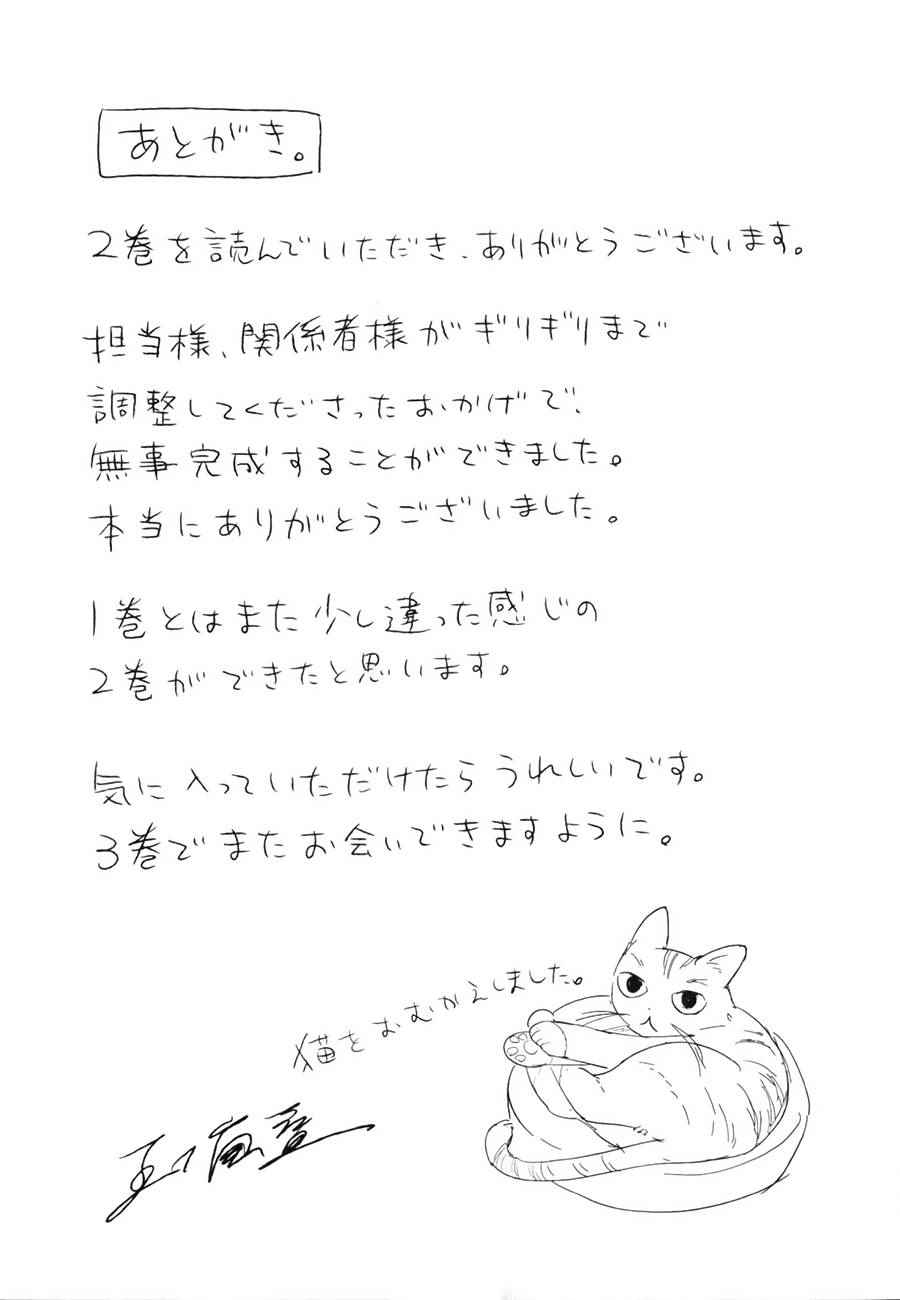 あとがき。
2巻を読んでいただき、ありがとうございます。
担当様、関係者様がギリギリまで
調整してくださったおかげで、
無事完成することができました。
本当にありがとうございました。
1巻とはまた少し違った感じの
2巻ができたと思います。
気に入っていただけたらうれしいです。
3巻でまたお会いできますように。
猫をおむかえしました。